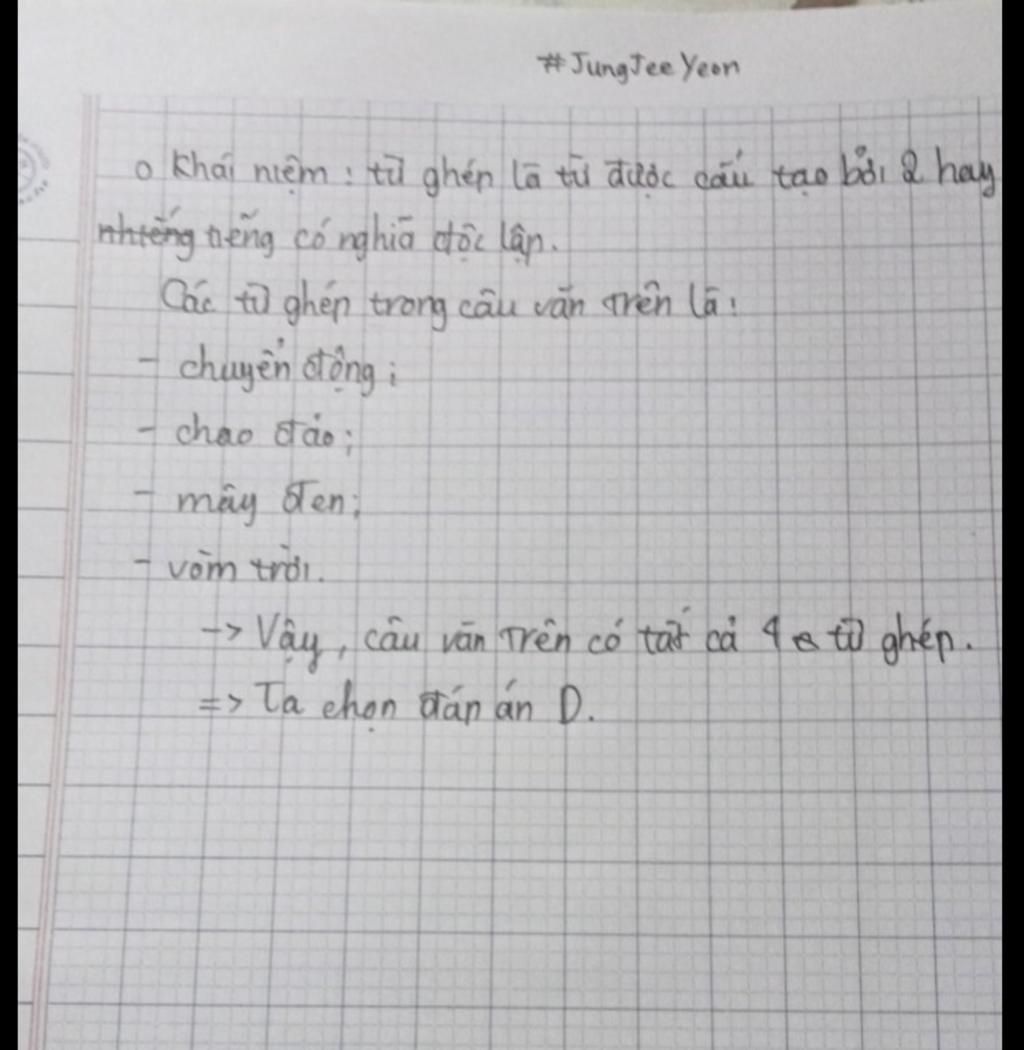 #JungJeeYeon
o Khái niệm : từ ghép là từ được cấu tạo bởi 2 hay
nhiếng tiếng có nghĩa độc lập.
Các từ ghép trong câu văn trên là:
- chuyển động;
- chao đảo;
- mây đen;
- vòm trời.
-> Vậy, câu văn trên có tất cả 4 từ ghép.
=> Ta chọn đáp án D.